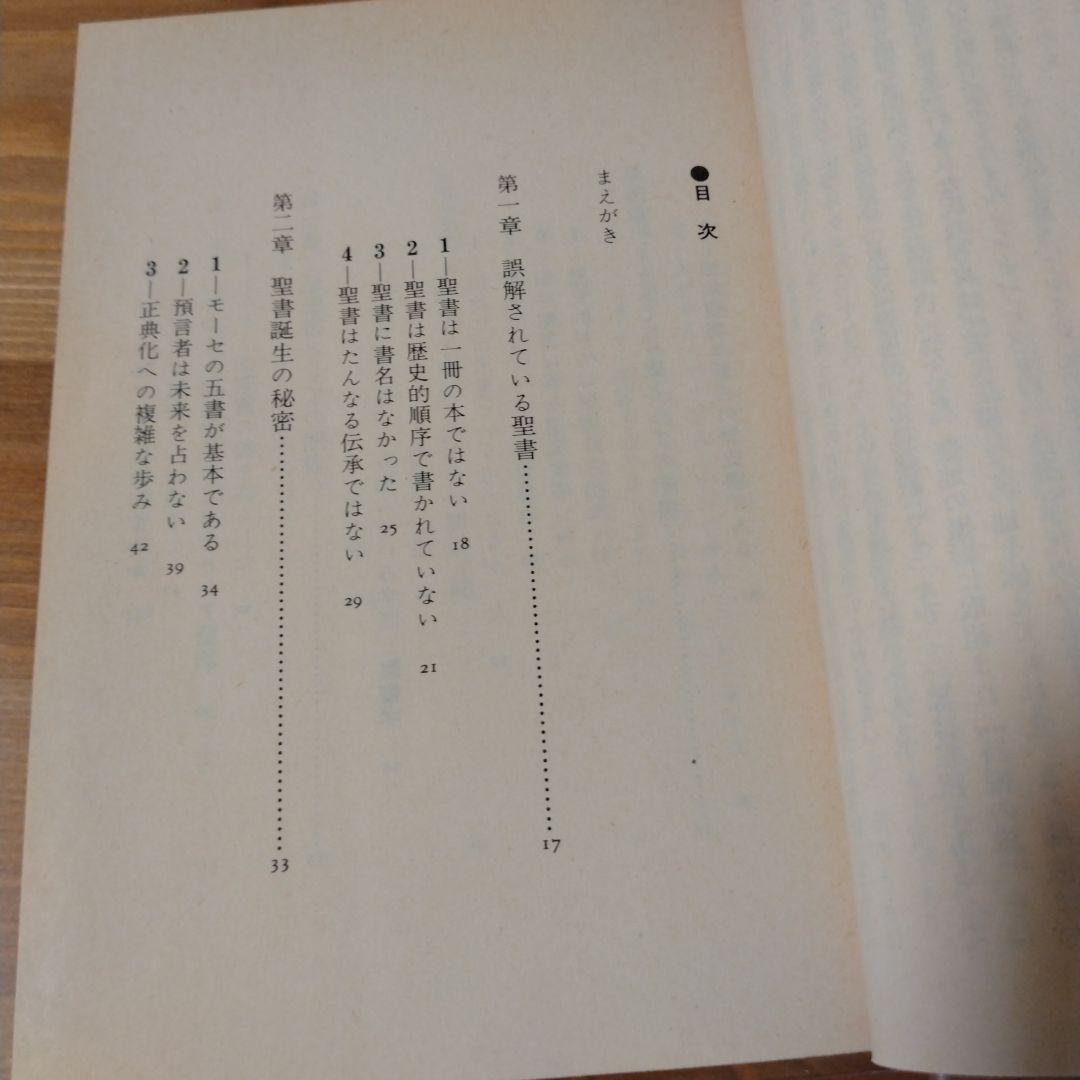 ●目次
まえがき
第一章 誤解されている聖書……………………………17
1―聖書は一冊の本ではない 18
2―聖書は歴史的順序で書かれていない 21
3―聖書に書名はなかった 25
4―聖書はたんなる伝承ではない 29
第二章 聖書誕生の秘密……………………………33
1―モーセの五書が基本である 34
2―預言者は未来を占わない 39
3―正典化への複雑な歩み 42